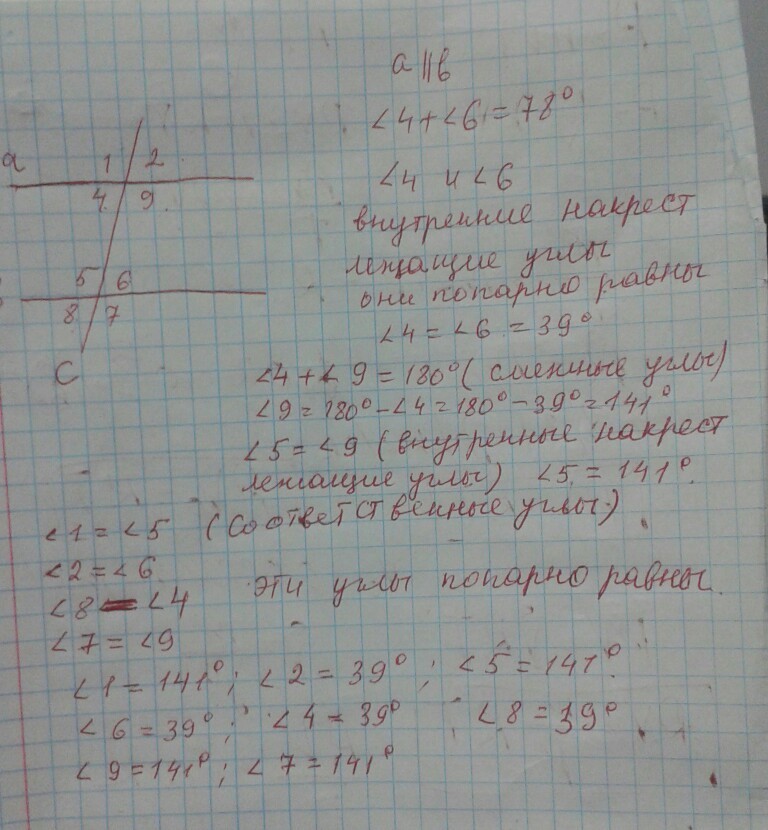 a || b
∠4+∠6=78°
a 1 2
4 9
∠4 и ∠6
внутренние накрест
лежащие углы
они попарно равны
5 6
8 7
∠4=∠6=39°
c
∠4+∠9=180° (смежные углы)
∠9=180°-∠4=180°-39°=141°
∠5=∠9 (внутренные накрест
лежащие углы) ∠5=141°.
∠1=∠5 (соответственные углы)
∠2=∠6
∠8 ∠4 Эти углы попарно равны.
∠7=∠9
∠1=141°; ∠2=39°; ∠5=141°.
∠6=39°; ∠4=39° ∠8=39°
∠9=141°; ∠7=141°